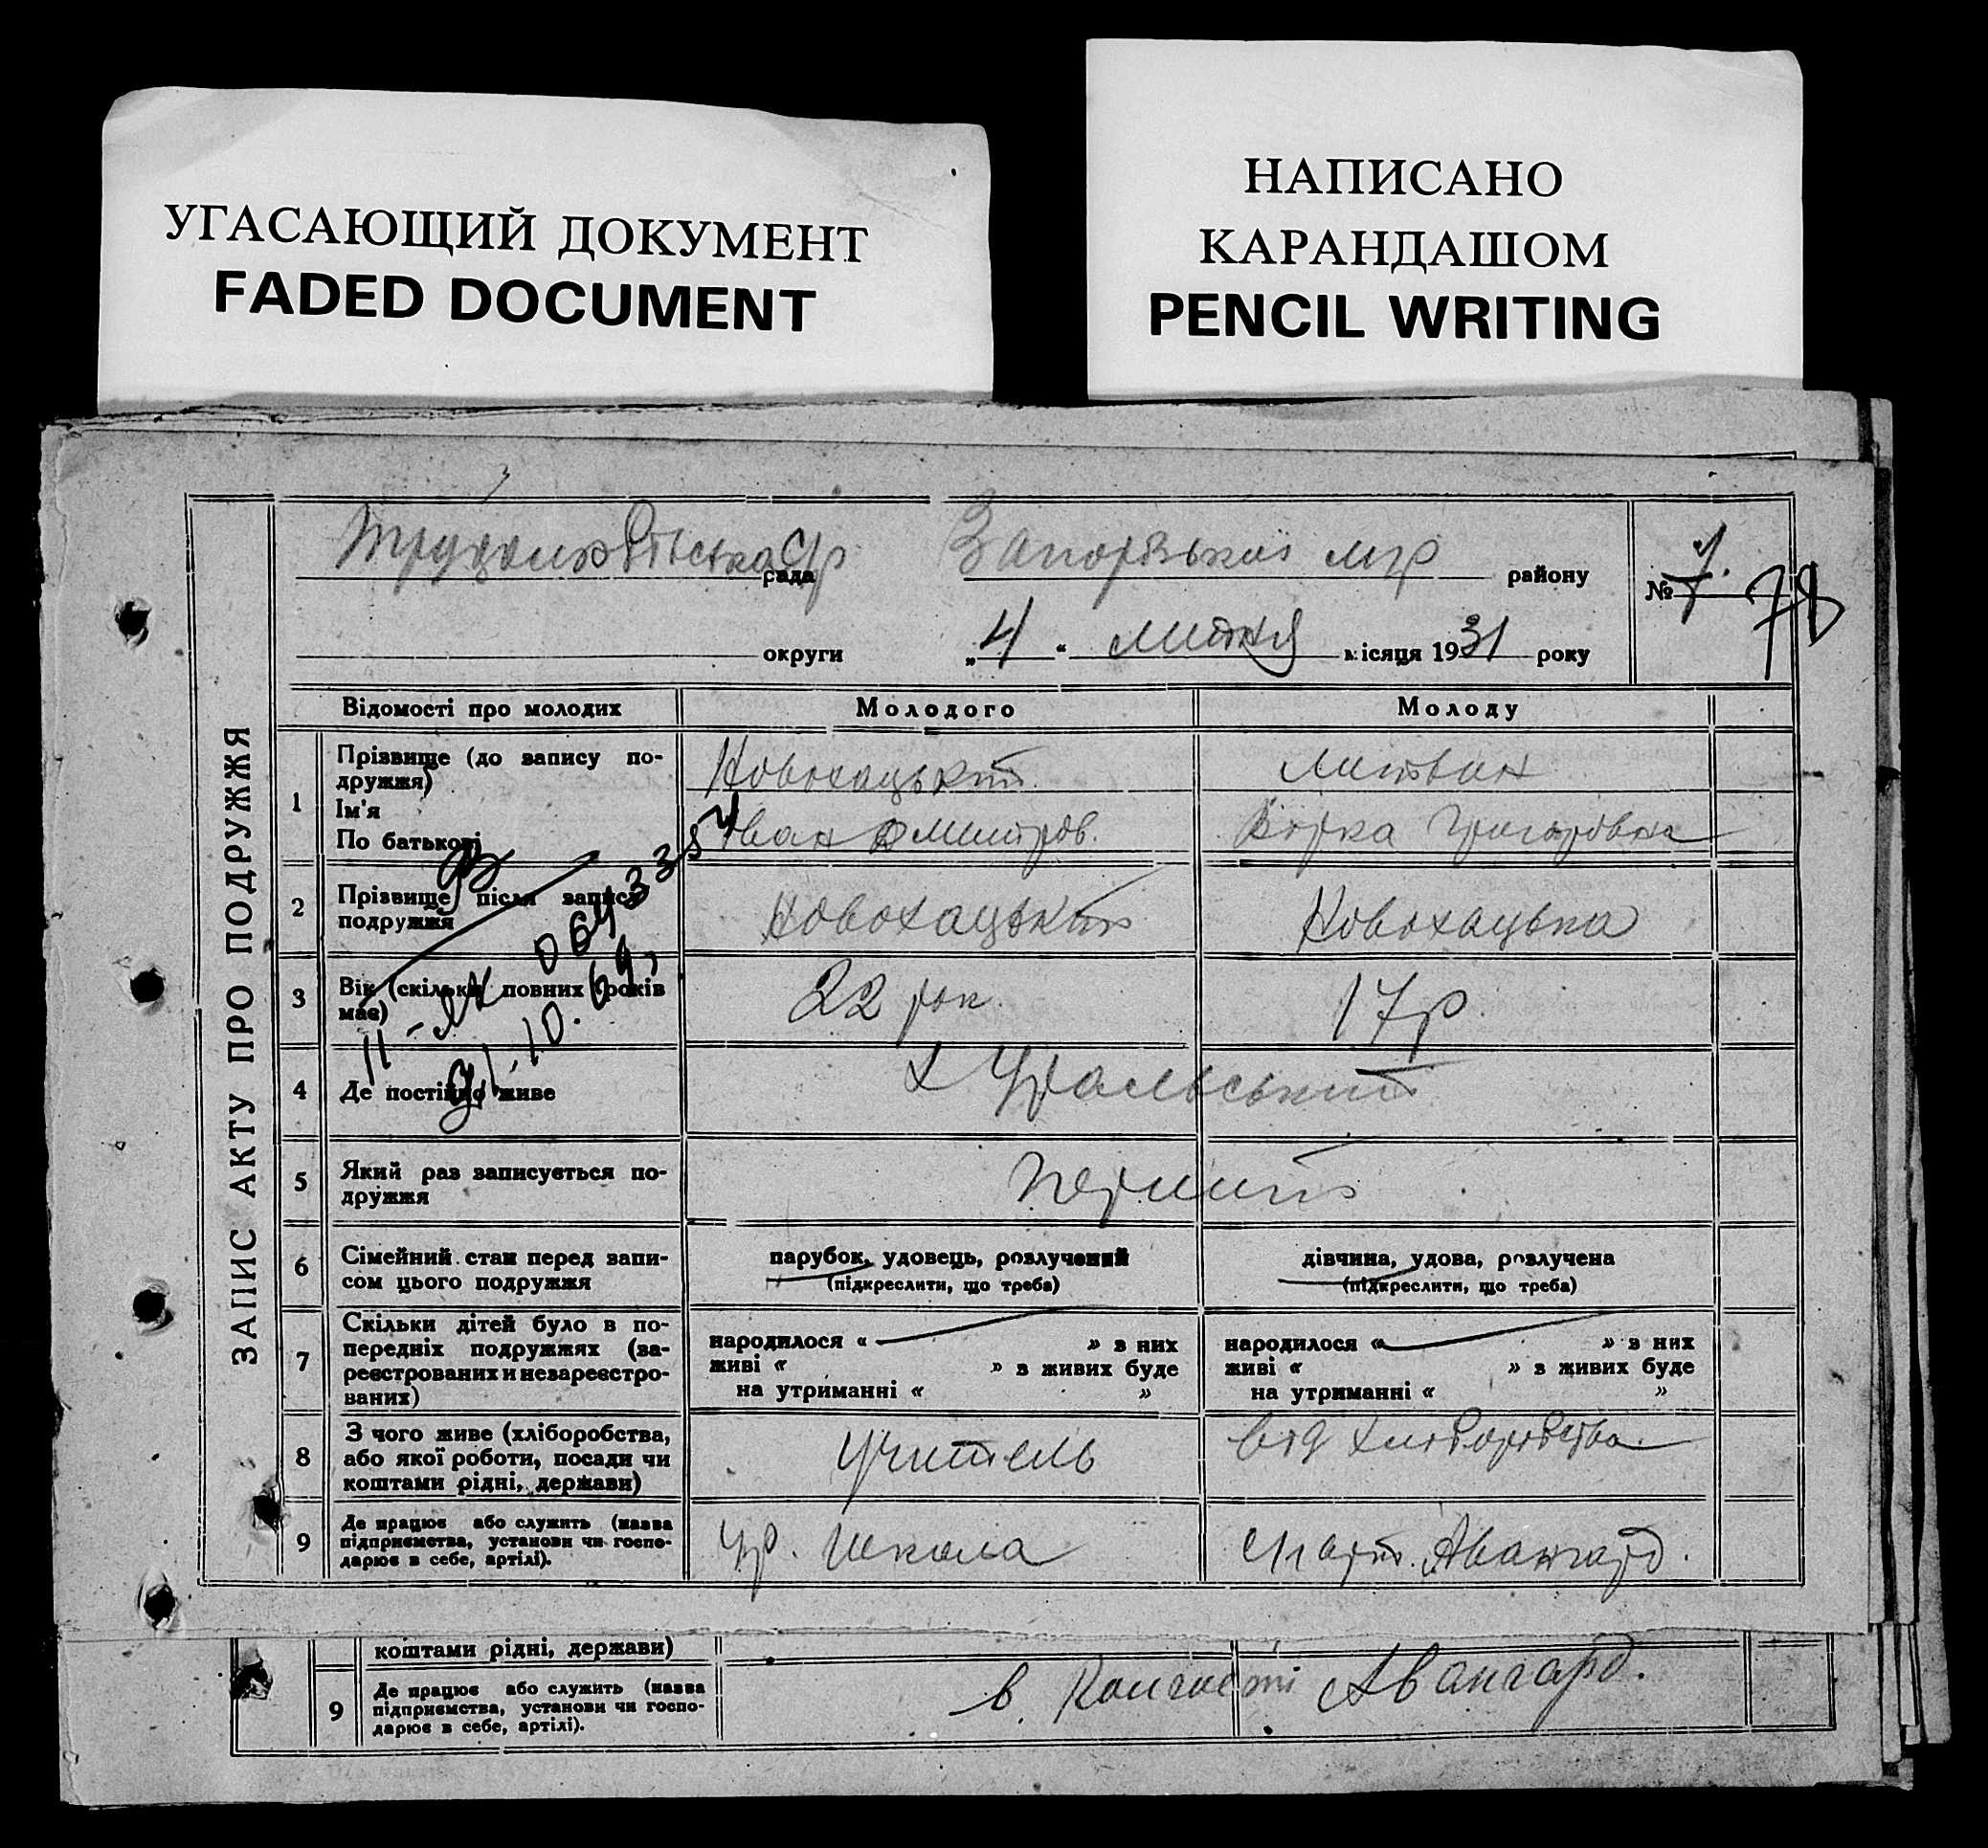 УГАСАЮЩИЙ ДОКУМЕНТ
FADED DOCUMENT
НАПИСАНО
КАРАНДАШОМ
PENCIL WRITING
ЗАПИС АКТУ ПРО ПОДРУЖЖЯ
рада Запорізької мр району
№ 7. 78
округи „4“ липня місяця 1931 року
Відомості про молодих Молодого Молоду
1 Прізвище (до запису по-
дружжя)
Ім'я
По батькові
Новохацький Литвин
Іван Дмитров. Вірка Григорівна
2 Прізвище після запису
подружжя
Новохацький Новохацька
3 Вік (скільки повних років
має)
22 рок. 17р.
064335
11-ЯК
21.10.69
4 Де постійно живе
х Уральський
5 Який раз записується по-
дружжя
Перший
6 Сімейний стан перед запи-
сом цього подружжя
парубок, удовець, розлучений
(підкреслити, що треба)
дівчина, удова, розлучена
(підкреслити, що треба)
7 Скільки дітей було в по-
передніх подружжях (за-
реєстрованих и незареєстро-
ваних)
народилося « » з них
живі « » з живих буде
на утриманні « »
народилося « » з них
живі « » з живих буде
на утриманні « »
8 З чого живе (хліборобства,
або якої роботи, посади чи
коштами рідні, держави)
Учитель
від хліборобства.
9 Де працює або служить (назва
підприємства, установи чи госпо-
дарює в себе, артілі).
Ур. школа
арт. Авангард.
коштами рідні, держави)
9 Де працює або служить (назва
підприємства, установи чи госпо-
дарює в себе, артілі).
в. Колгоспі Авангард.